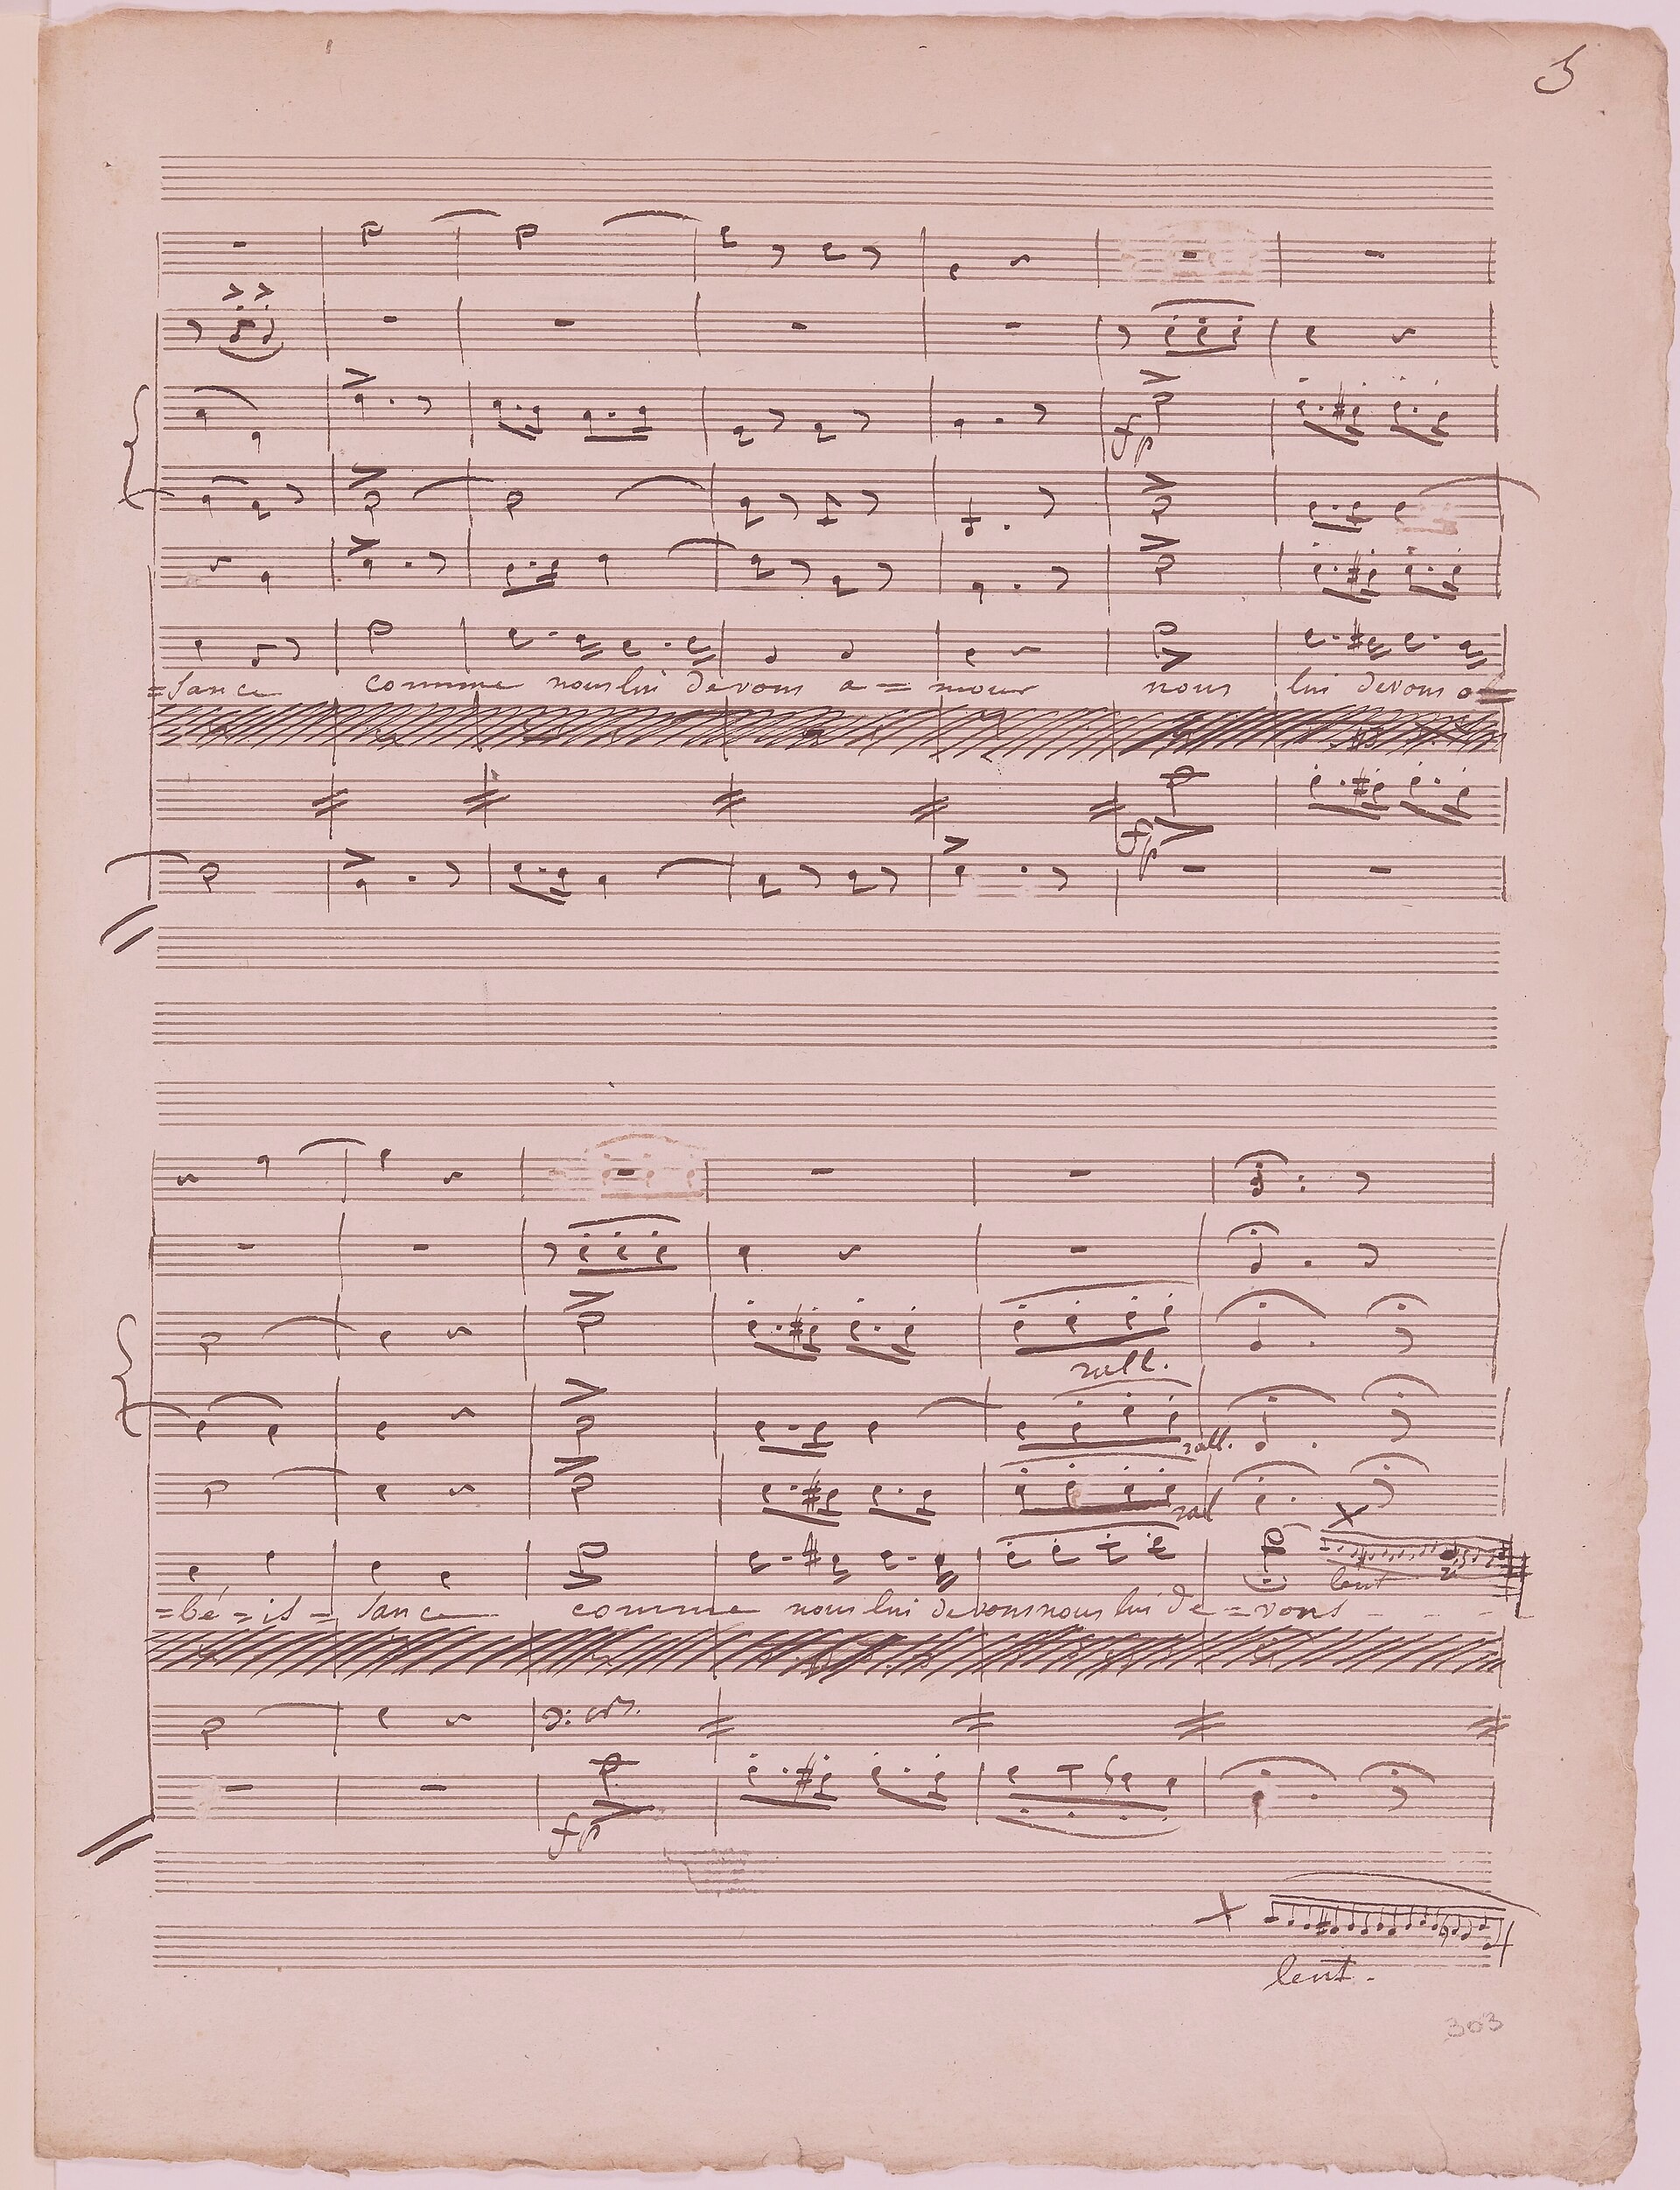 5
fp
=sance comme nous lui devons a = mour nous lui devons o
fp
rall.
rall.
rall
lent
=bé = is = sance comme nous lui devons nous lui de = vons
fp
lent.
303